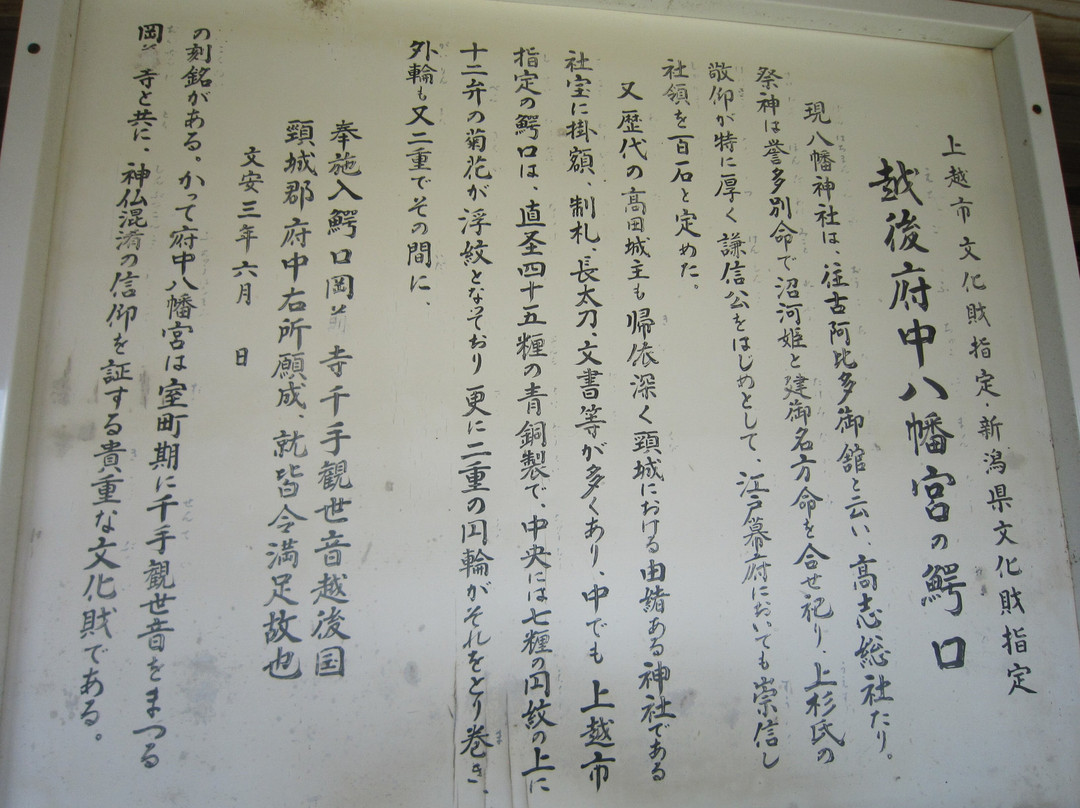 上越市文化財指定 新潟県文化財指定
越後府中八幡宮の鰐口
現八幡神社は、往古阿比多御舘と云い、高志総社たり。
祭神は誉多別命で沼河姫と建御名方命を合せ祀り、上杉氏の
敬仰が特に厚く謙信公をはじめとして、江戸幕府においても崇信し
社領を百石と定めた。
又歴代の高田城主も帰依深く頸城における由緒ある神社である
社宝に掛額、制札、長太刀、文書等が多くあり、中でも上越市
指定の鰐口は、直圣四十五糎の青銅製で、中央には七糎の円紋の上に
十二弁の菊花が浮紋となっており更に二重の円輪がそれをとり巻き、
外輪も又二重でその間に、
奉施入鰐口岡前寺千手観世音越後国
頸城郡府中右所願成、就皆令満足故也
文安三年六月 日
の刻銘がある。かって府中八幡宮は室町期に千手観世音をまつる
岡寺と共に、神仏混淆の信仰を証する貴重な文化財である。